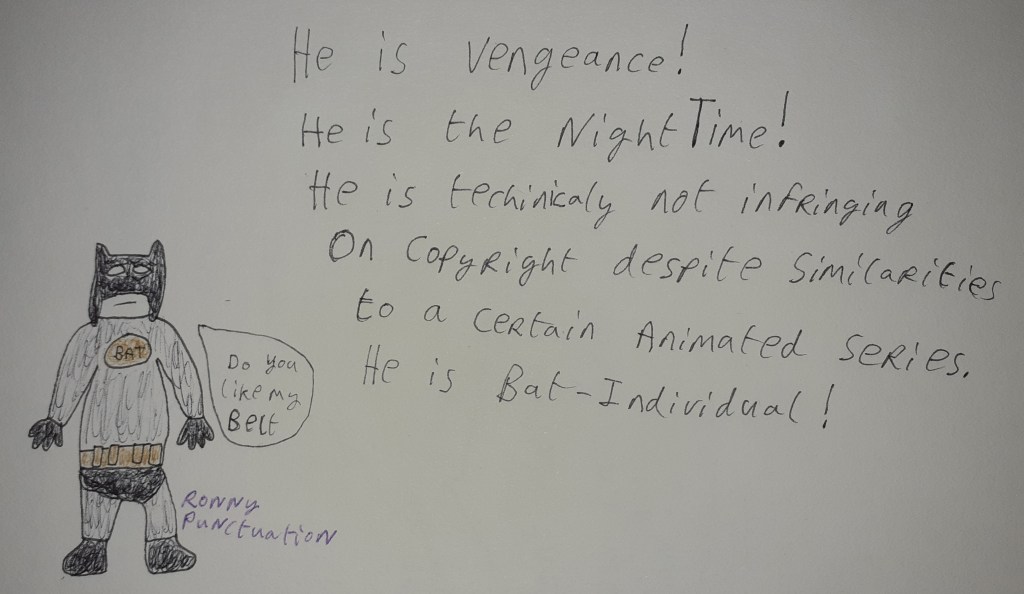 He is Vengeance!
He is the NightTime!
He is techinicaly not infringing
On Copyright despite Similarities
to a certain Animated Series.
He is Bat-Individual!
BAT
Do you
like my
Belt
Ronny
Punctuation